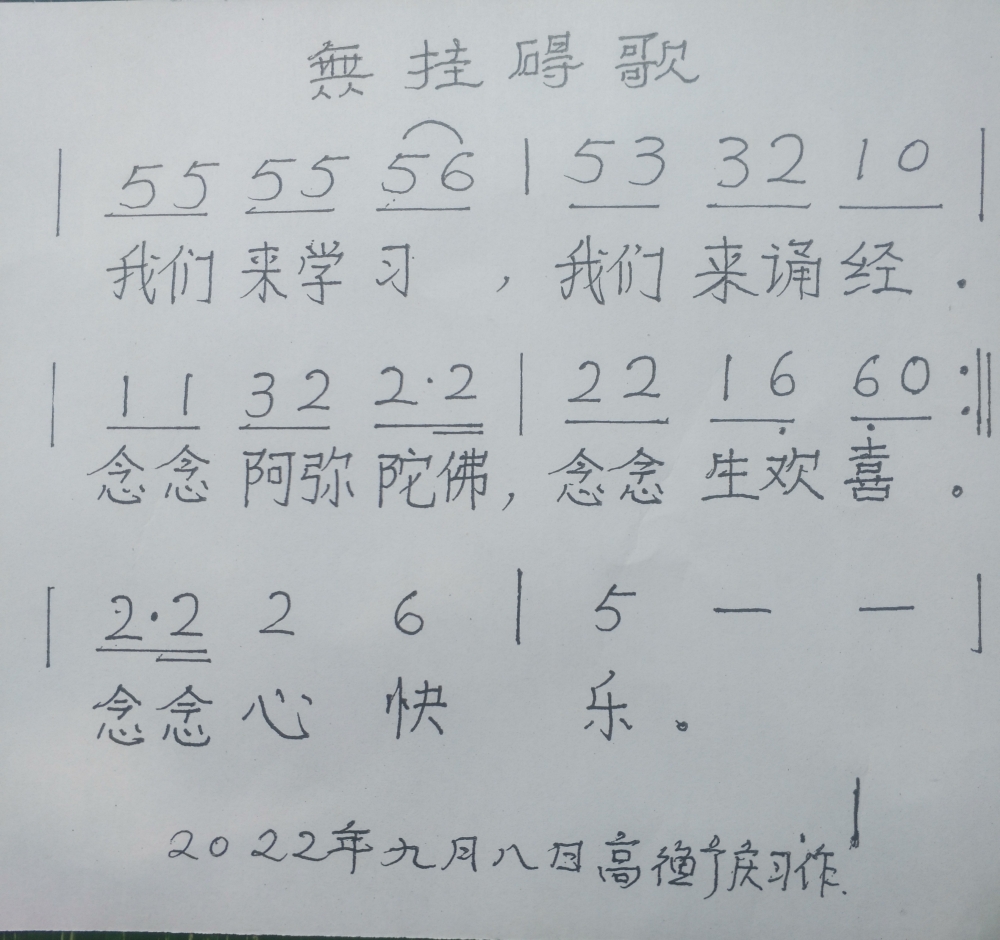 無挂碍歌
| 55 55 56 | 53 32 10 |
我们来学习，我们来诵经.
| 11 32 2·2 | 22 16̣ 6̣0 :||
念念阿弥陀佛，念念生欢喜。
| 2·2 2 6 | 5 — — |
念念心快乐。
2022年九月八日高 习作.